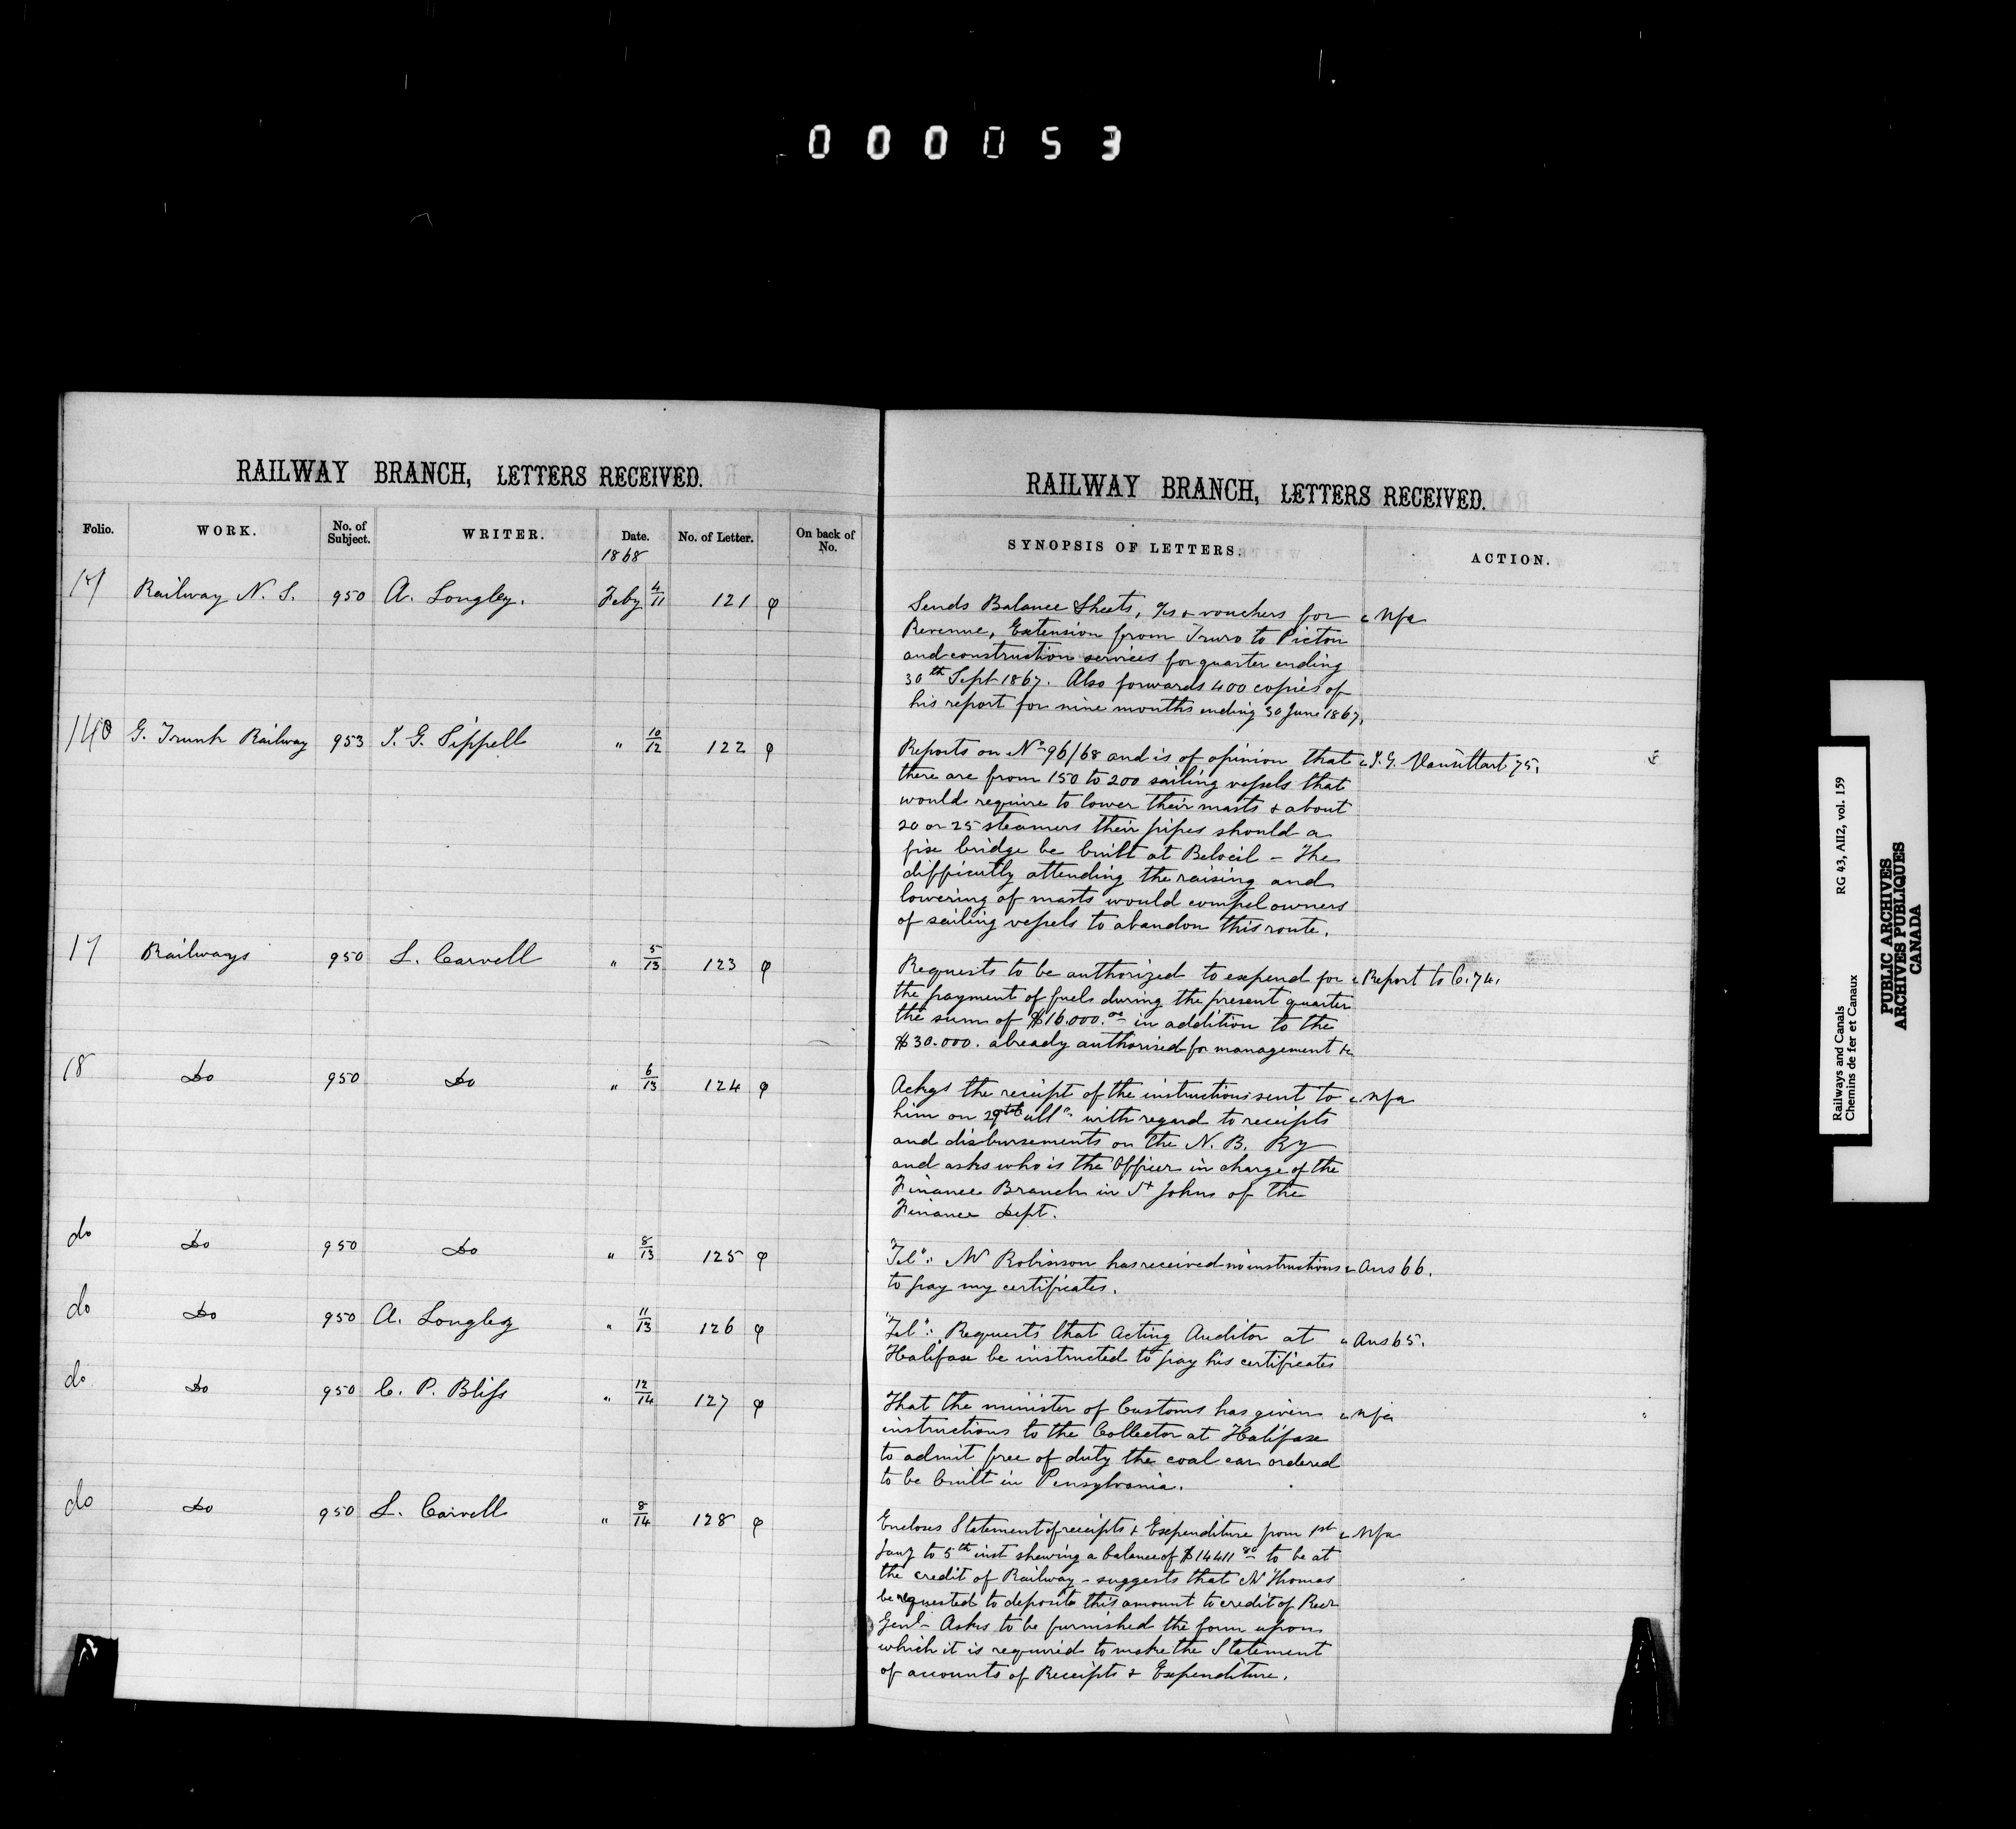 000053
RAILWAY BRANCH, LETTERS RECEIVED.
Folio. WORK. No. of Subject. WRITER. Date. No. of Letter. On back of No.
1868
17 Railway N. S. 950 A. Longley. Feby 4/11 121 φ
140 G. Trunk Railway 953 S. G. Sippell " 10/12 122 φ
17 Railways 950 L. Carvell " 5/13 123 φ
18 Do 950 Do " 6/13 124 φ
do Do 950 Do " 8/13 125 φ
do Do 950 A. Longley " 11/13 126 φ
do Do 950 C. P. Bliss " 12/14 127 φ
do Do 950 L. Carvell " 8/14 128 φ
RAILWAY BRANCH, LETTERS RECEIVED.
SYNOPSIS OF LETTERS. ACTION.
Sends Balance Sheets, a/cs & vouchers for nfa
Revenue, Extension from Truro to Pictou
and construction services for quarter ending
30th Sept 1867. Also forwards 400 copies of
his report for nine months ending 30 June 1867.
Reports on No 96/68 and is of opinion that S. G. Vansittart 75.
there are from 150 to 200 sailing vessels that
would require to lower their masts & about
20 or 25 steamers their pipes should a
fixe bridge be built at Beloeil – The
difficulty attending the raising and
lowering of masts would compel owners
of sailing vessels to abandon this route.
Requests to be authorized to expend for Report to C. 74.
the payment of fuels during the present quarter
the sum of $16.000.00 in addition to the
$30.000. already authorised for management &c
Ackgs the receipt of the instructions sent to nfa
him on 29th ulto with regard to receipts
and disbursements on the N. B. Ry
and asks who is the Officer in charge of the
Finance Branch in St Johns of the
Finance Dept.
"Tel": Mr Robinson has received no instructions Ans 66.
to pay my certificates.
"Tel": Requests that Acting Auditor at Ans 65.
Halifax be instructed to pay his certificates
That the minister of Customs has given nfa
instructions to the Collector at Halifax
to admit free of duty the coal cars ordered
to be built in Pensylvania.
Encloses Statement of receipts & Expenditure from 1st nfa
Jany to 5th inst shewing a balance of $14411 80 to be at
the credit of Railway – suggests that Mr Thomas
be requested to deposite this amount to credit of Recr
Genl – Asks to be furnished the form upon
which it is required to make the Statement
of accounts of Receipts & Expenditure.
Railways and Canals RG 43, AII2, vol. 159
Chemins de fer et Canaux
PUBLIC ARCHIVES
ARCHIVES PUBLIQUES
CANADA